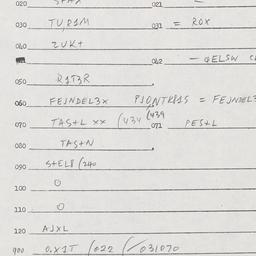 020 021
030 TUPIM 031 = ROX
040 ZUKT
042 - GELSW
050 RIT3R
060 FEJNDEL3X PJONTRBIS = FEJNDEL3
070 TAS+L XX (434 (439 071 PES+L
080 TAS+N
090 S+EL8 (240
100 0
110 0
120 AJXL
900 0.X1T /022 (/031070